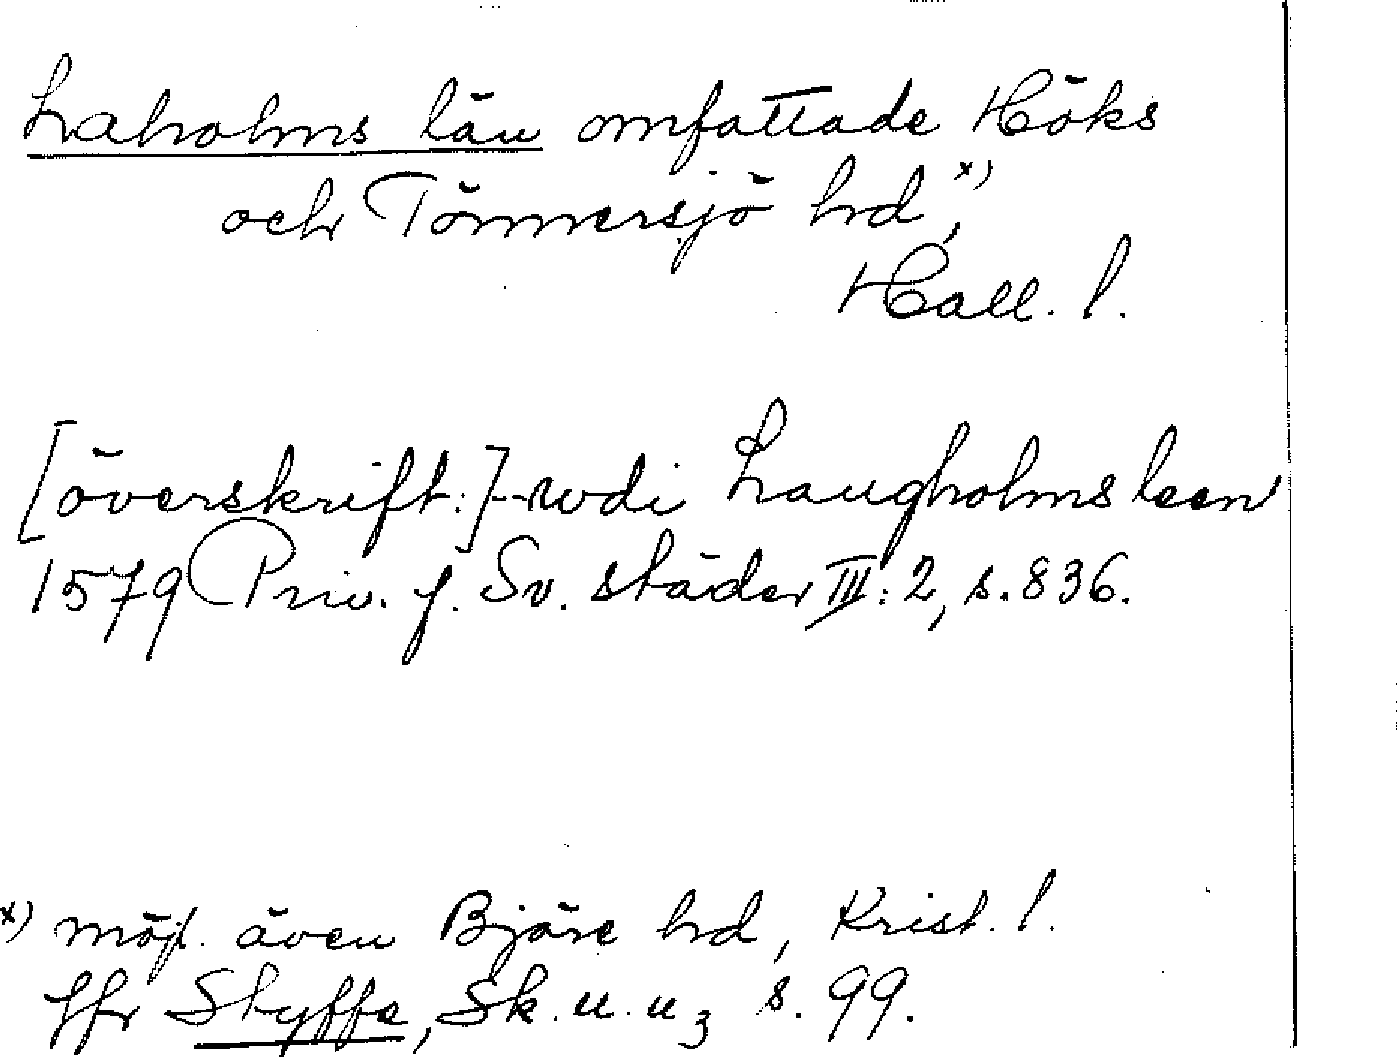 Laholms län omfattade Höks
och Tönnersjö hd x),
Hall. l.
[överskrift:] -- wdi Laugholms leen
1579 Priv. f. Sv. städer III: 2, s. 836.
x) möjl. även Bjäre hd, Krist. l.
jfr Styffe, Sk. u. u3 s. 99.